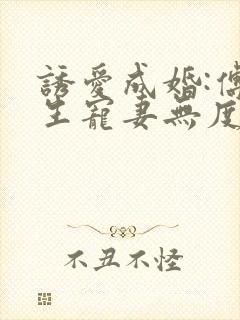 誘愛成婚:傅
生寵妻無度
不丑不怪